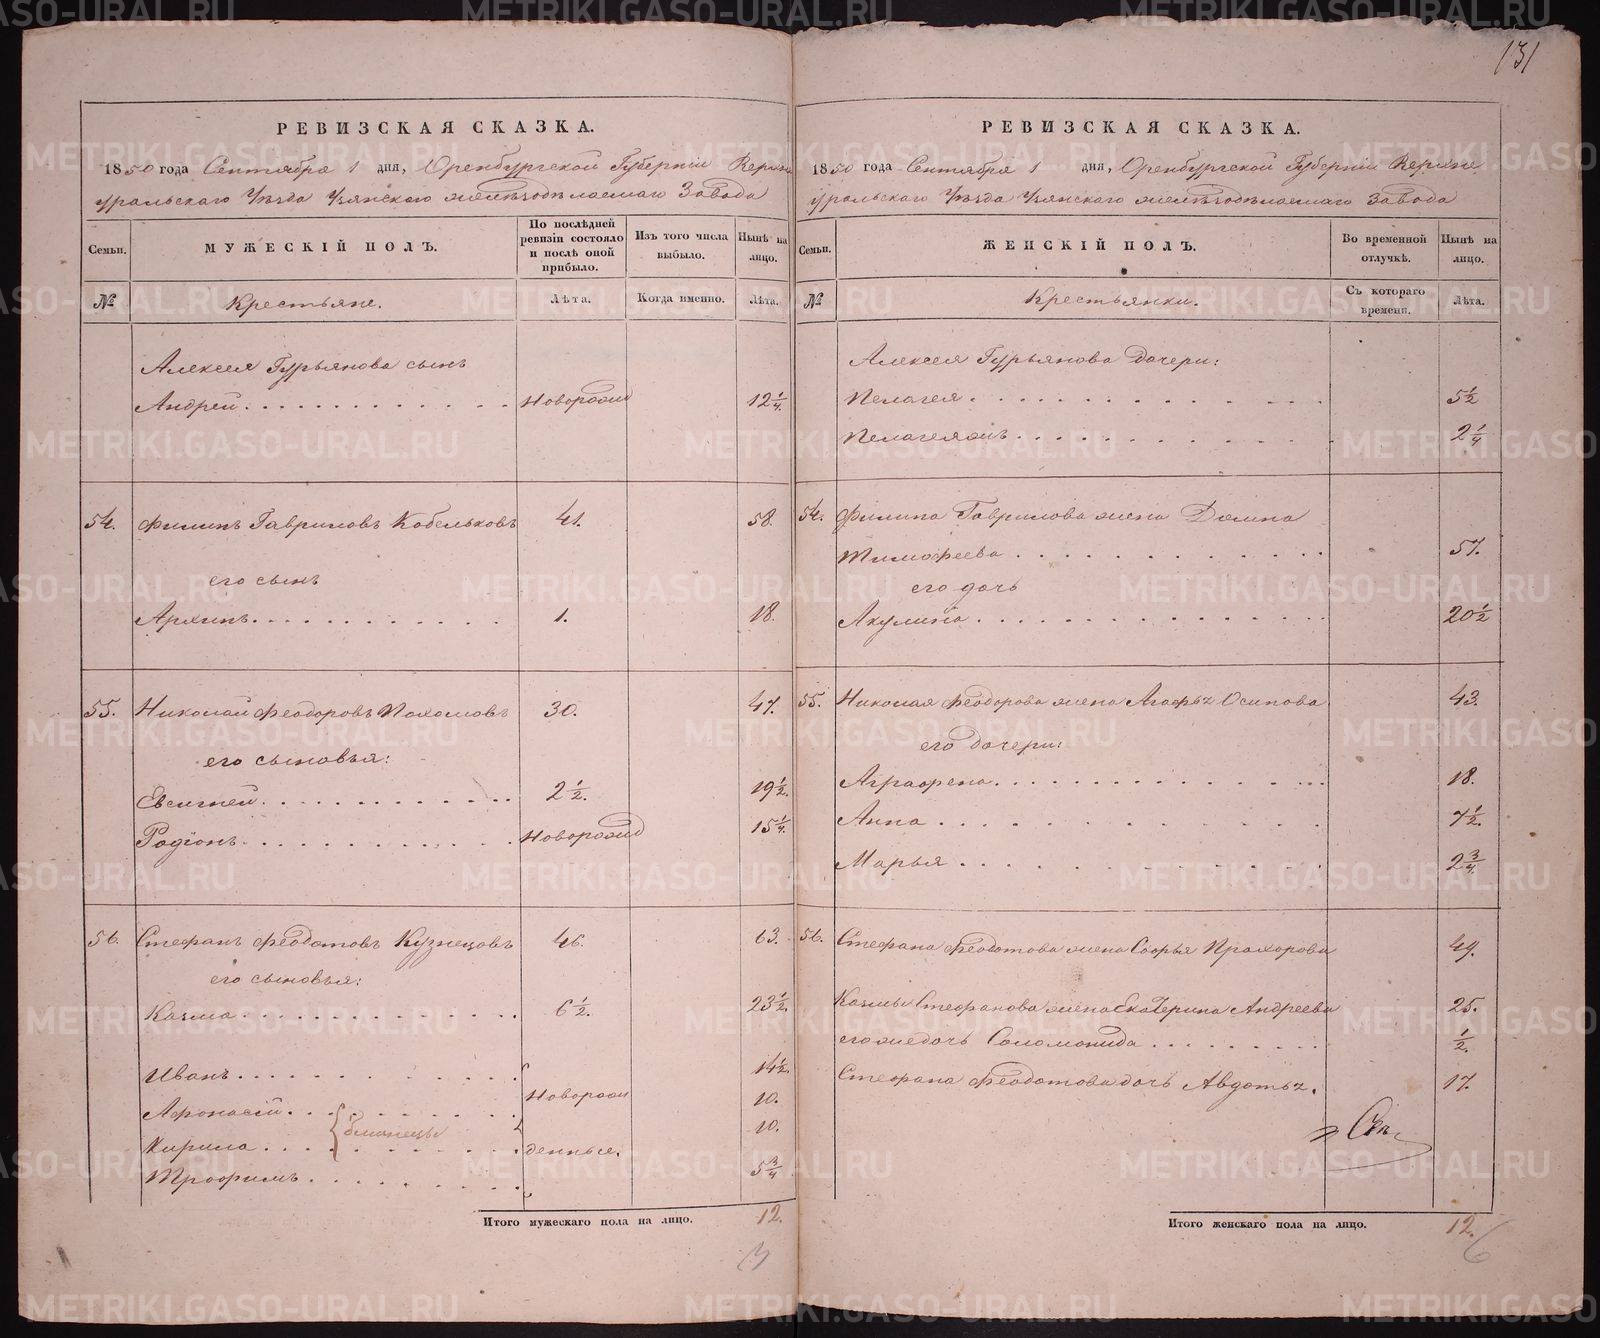 РЕВИЗСКАЯ СКАЗКА.
1850 года Сентября 1 дня, Оренбургской Губерніи Верхне
уральскаго Уѣзда Узянскаго желѣзодѣлаемаго Завода
Семьи.
МУЖЕСКІЙ ПОЛЪ.
По послѣдней ревизіи состояло и послѣ оной прибыло.
Изъ того числа выбыло.
Нынѣ на лицо.
№
Крестьяне.
Лѣта.
Когда именно.
Лѣта.
Алексея Гурьянова сынъ
Андрей. Новорожд 12 1/4.
54. Филипъ Гавриловъ Кобельковъ 41. 58.
его сынъ
Архипъ. 1. 18.
55. Николай Феодоровъ Пахомовъ 30. 47.
его сыновья:
Евсигней. 2 1/2. 19 1/2.
Родіонъ. Новорожд 15 1/4.
56. Стефанъ Феодотовъ Кузнецовъ 46. 63.
его сыновья:
Казма. 6 1/2. 23 1/2.
Иванъ. 14 1/2.
Новорож
Афонасій. 10.
близнецы
Кирила. денные. 10.
Трофимъ. 5 3/4
Итого мужескаго пола на лицо. 12.
131
РЕВИЗСКАЯ СКАЗКА.
1850 года Сентября 1 дня, Оренбургской Губерніи Верхне
уральскаго Уѣзда Узянскаго желѣзодѣлаемаго Завода
Семьи.
ЖЕНСКІЙ ПОЛЪ.
Во временной отлучкѣ.
Нынѣ на лицо.
№
Крестьянки.
Съ котораго времени.
Лѣта.
Алексея Гурьянова дочери:
Пелагея. 5 1/2
Пелагеяжъ. 2 1/4
54. Филипа Гаврилова жена Домна
Тимофеева. 57.
его дочь
Акулина. 20 1/2
55. Николая Феодорова жена Агафья Осипова 43.
его дочери:
Аграфена. 18.
Анна. 7 1/2.
Марья. 2 3/4.
56. Стефана Феодотова жена Софья Прохорова 49.
Казмы Стефанова жена Екатерина Андреева 25.
его же дочь Соломонида. 1/2.
Стефана Феодотова дочь Авдотья. 17.
Итого женскаго пола на лицо. 12.
6
METRIKI.GASO-URAL.RU